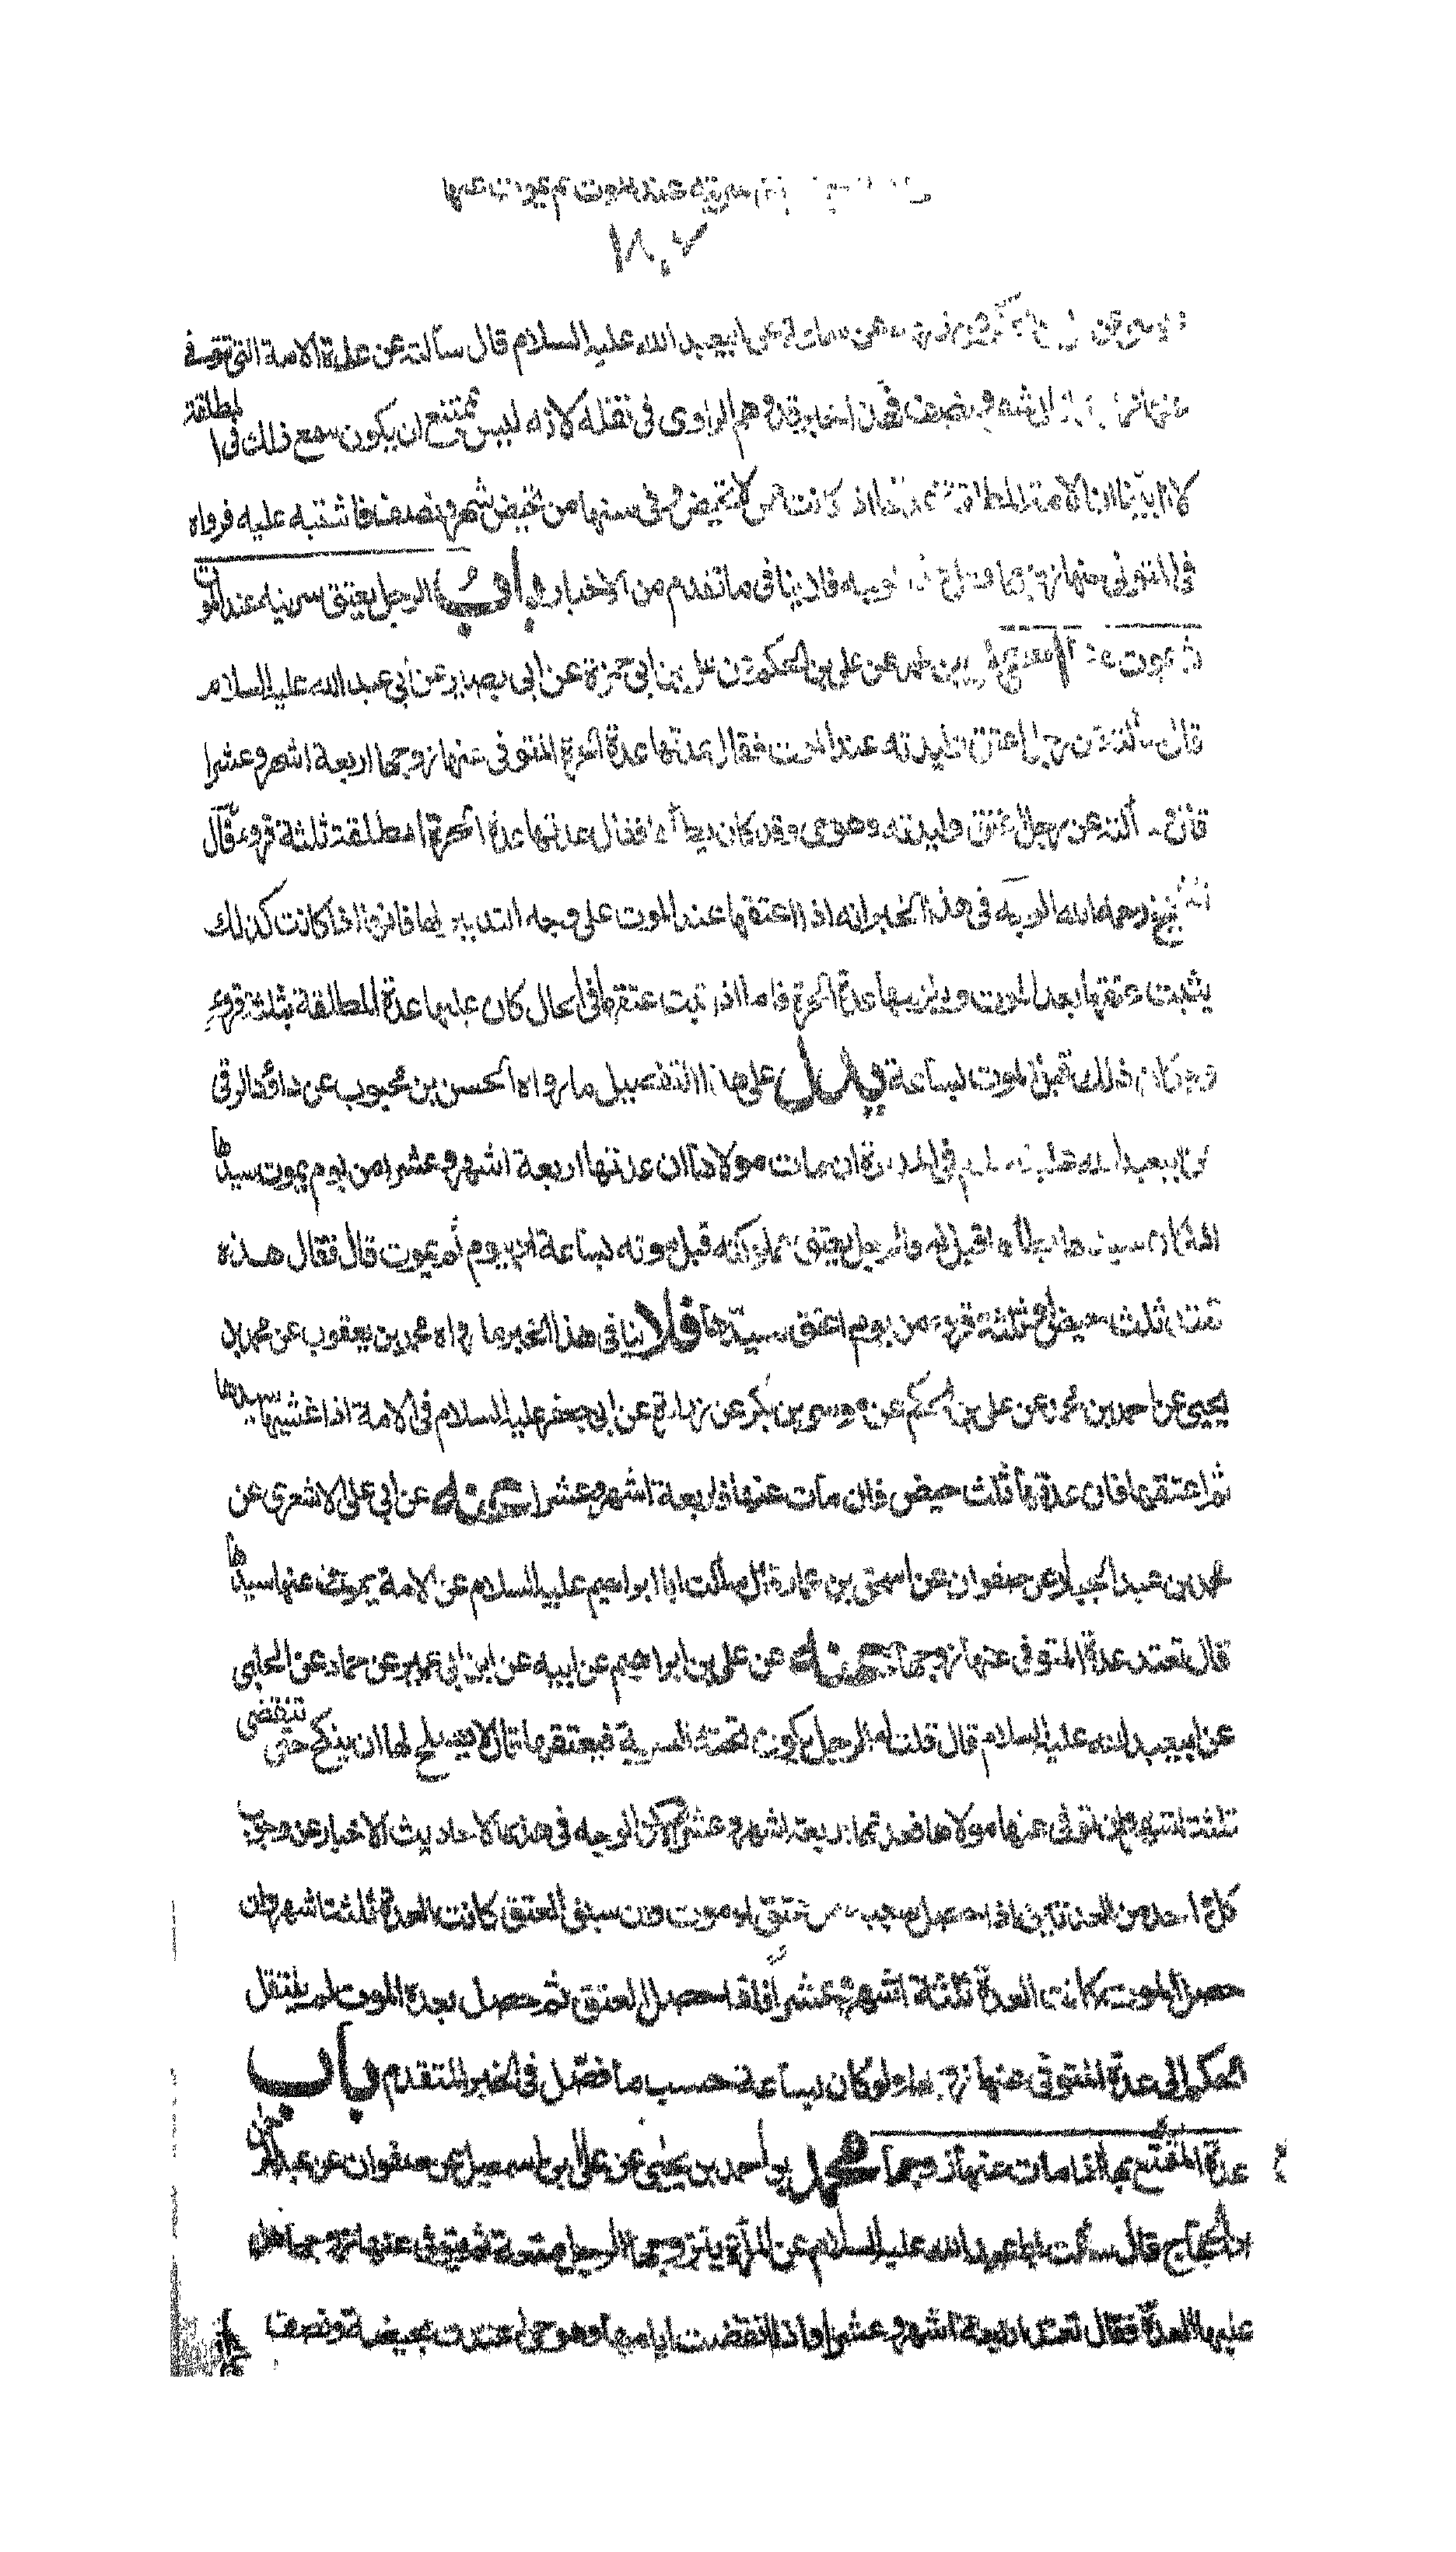 سريته عند الموت ثم يموت عنها
١٨٠٧
عن سماعة عن ابيعبد الله عليه السلام قال سألته عن عدة الامة التى توفى
عنها شهر ونصف فهذه اخبار قد وهم الراوى فى نقله لانه ليس يمتنع ان يكون سمع ذلك فى المطلقة
لانا بينا ان الامة المطلقة عدتها اذا كانت ممن لا تحيض وفى سنها من تحيض شهر ونصف فاشتبه عليه فرواه
فى المتوفى عنها زوجها فلا ينافى ما تقدم من الاخبار باب الرجل يعتق سريته عند الموت
ثم يموت عنها عن على بن الحكم عن على بن ابى حمزة عن ابى بصير عن ابى عبد الله عليه السلام
قال سألته عن رجل اعتق وليدته عند الموت فقال عدتها عدة الحرة المتوفى عنها زوجها اربعة اشهر وعشرا
قال وسألته عن رجل اعتق وليدته وهو حى وقد كان يطأها فقال عدتها عدة الحرة المطلقة ثلثة قروء قال
الشيخ رحمه الله الوجه فى هذا الخبر انه اذا اعتقها عند الموت على وجه التدبير لها فانها اذا كانت كذلك
يثبت عتقها بعد الموت ويلزمها عدة الحرة فاما اذا ثبت عتقها فى الحال كان عليها عدة المطلقة ثلثة قروء
وان كان ذلك قبل الموت بساعة يدل على هذا التفصيل ما رواه الحسن بن محبوب عن داود الرقى
عن ابيعبد الله عليه السلام فى المدبرة ان مات مولاها ان عدتها اربعة اشهر وعشرا من يوم يموت سيدها
اذا كان سيدها يطأها قيل له فالرجل يعتق مملوكته قبل موته بساعة او يوم ثم يموت قال فقال هذه
تعتد ثلث حيض او ثلثة قروء من يوم اعتق سيدها فلا ينافى هذا الخبر ما رواه محمد بن يعقوب عن محمد بن
يحيى عن احمد بن محمد عن على بن الحكم عن موسى بن بكر عن زرارة عن ابى جعفر عليه السلام فى الامة اذا غشيها سيدها
ثم اعتقها فان عدتها ثلث حيض فان مات عنها فاربعة اشهر وعشرا عنه عن ابى على الاشعرى عن
محمد بن عبد الجبار عن صفوان عن اسحق بن عمار قال سألت ابا ابراهيم عليه السلام عن الامة يموت عنها سيدها
قال تعتد عدة المتوفى عنها زوجها عنه عن على بن ابراهيم عن ابيه عن ابن ابى عمير عن حماد عن الحلبى
عن ابيعبد الله عليه السلام قال قلت له الرجل يكون تحته السرية فيعتقها قال لا يصلح لها ان ينكح حتى تنقضى
ثلثة اشهر وان توفى عنها مولاها فعدتها اربعة اشهر وعشر لان الوجه فى هذه الاحاديث الاخبار عن وجوب
كل واحد من العدتين اذا حصل موجب من عتق او موت فان سبق العتق كانت العدة ثلثة اشهر وان
حصل الموت كانت العدة ثلثة اشهر وعشرا فاذا حصل العتق ثم حصل بعده الموت لم ينتقل
الحكم الى عدة المتوفى عنها زوجها ولو كان بساعة حسب ما فصل فى الخبر المتقدم باب
عدة المتمتع بها اذا مات عنها زوجها محمد بن احمد بن يحيى عن على بن اسمعيل عن صفوان عن عبد الرحمن
ابن الحجاج قال سألت ابا عبد الله عليه السلام عن المرأة يتزوجها الرجل متعة ثم يتوفى عنها زوجها هل
عليها العدة فقال تعتد اربعة اشهر وعشرا واذا انقضت ايامها وهو حى فحيضة ونصف